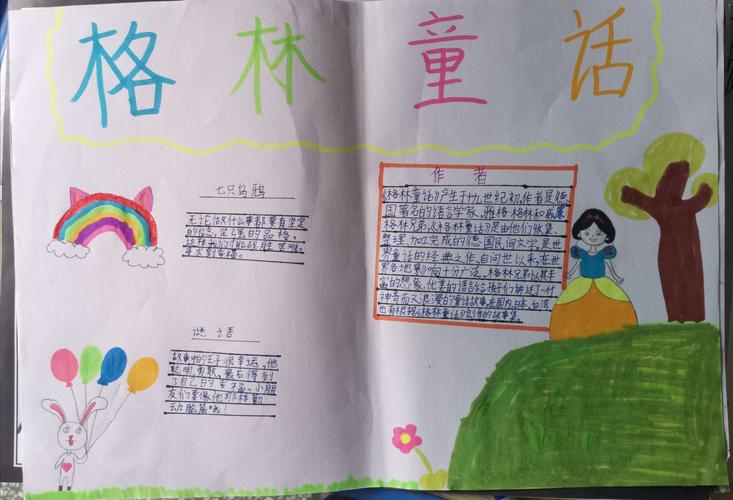 格林童话
七只乌鸦
无论做什么事都要有坚定
的信念,坚强的品格,
这样我们才能战胜困难,
寻找到幸福。
谜语
故事中的王子很幸运,他
聪明勇敢,最后得到
了自己的幸福。小朋
友们要像他那样勤
动脑筋哦!
作者
《格林童话》产生于十九世纪初,作者是德
国著名的语言学家,雅格·格林和威廉·
格林兄弟,《格林童话》是由他们收集、
整理、加工完成的德国民间文学,是世
界童话的经典之作,自问世以来,在世
界各地影响十分广泛。格林兄弟以其丰
富的想象、优美的语言给孩子们讲述了一个
神奇而又浪漫的童话故事,在国内,日本,台湾
也有根据《格林童话》创作的故事集。